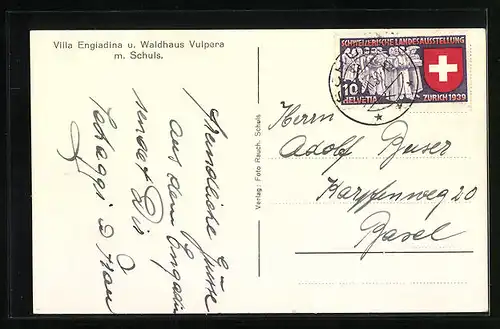 Villa Engiadina u. Waldhaus Vulpera
m. Schuls.
SCHWEIZERISCHE LANDESAUSSTELLUNG
10
HELVETIA
ZÜRICH 1939
Verlag: Foto Rauch, Schuls
Herrn
Adolf Buser
Karpfenweg 20
Basel
Freundliche Grüsse
aus dem Engadin
sendet Dir